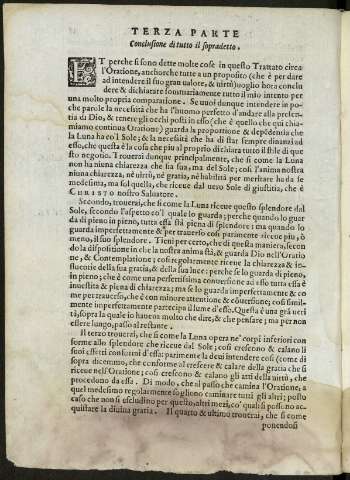 TERZA PARTE
Conclusione di tutto il sopradetto.
ET perche si sono dette molte cose in questo Trattato circa
l'Oratione, anchorche tutte a proposito (che è per dare
ad intendere il suo gran ualore, & uirtù) uoglio hora conclu
dere & dichiarare sommariamente tutto il mio intento per
una molto propria comparatione. Se uuoi dunque intendere in po-
che parole la necessità che ha l'huomo perfetto d'andare alla presen-
tia di Dio, & tenere gli occhi posti in esso (che è quello che qui chia-
miamo continua Oratione) guarda la proportione & depēdentia che
la Luna ha co'l Sole; & la necessità che ha di star sempre dinanzi ad
esso, che questa è la cosa che piu al proprio dichiara tutto il stile di que
sto negotio. Trouerai dunque principalmente, che si come la Luna
non ha niuna chiarezza che sia sua, ma del Sole; cosi l'anima nostra
niuna chiarezza, nè uirtù, nè gratia, nè habilità per meritare ha da se
medesima, ma sol quella, che riceue dal uero Sole di giustitia, che è
CHRISTO nostro Saluatore.
Secondo, trouerai, che si come la Luna riceue questo splendore dal
Sole, secondo l'aspetto co'l quale lo guarda; perche quando lo guar
da di pieno in pieno, tutta essa stà piena di splendore; ma quando lo
guarda imperfettamente & per trauerso così parimente riceue piu, o
meno, il suo splendore. Tieni per certo, che di questa maniera, secō
do la dispositione in che la nostra anima stà, & guarda Dio nell'Oratio
ne, & Contemplatione; cosi regolarmente riceue la chiarezza & in-
fluentie della sua gratia, & della sua luce: perche se lo guarda di pieno
in pieno; che è come una perfettissima conuersione ad esso tutta essa è
inuestita & piena di chiarezza; ma se lo guarda imperfettamente & co
me per trauerso, che è con minore attentione & cōuersione; cosi simil-
mente imperfettamente participa il lume d'esso. Questa è una grā ueri
tà, sopra la quale in haueua molto che dire, & che pensare; ma per non
essere lungo, passo al restante.
Il terzo trouerai, che si come la Luna opera ne' corpi inferiori con
forme allo splendore che riceue dal Sole; cosi crescono & calano li
suoi effetti conformi d'essa: parimente la deui intendere cosi (come di
sopra dicemmo, che conforme al crescere & calare della gratia che si
riceue nell'Oratione; cosi crescono & calano gli atti della uirtù, che
procedono da essa. Di modo, che al passo che camina l'Oratione, a
quel medesimo regolarmente sogliono caminare tutti gli altri; posto
caso che non si escludino per questo, altri mezi, co' quali si possono ac-
quistare la diuina gratia. Il quarto & ultimo trouerai, che si come
ponendosi